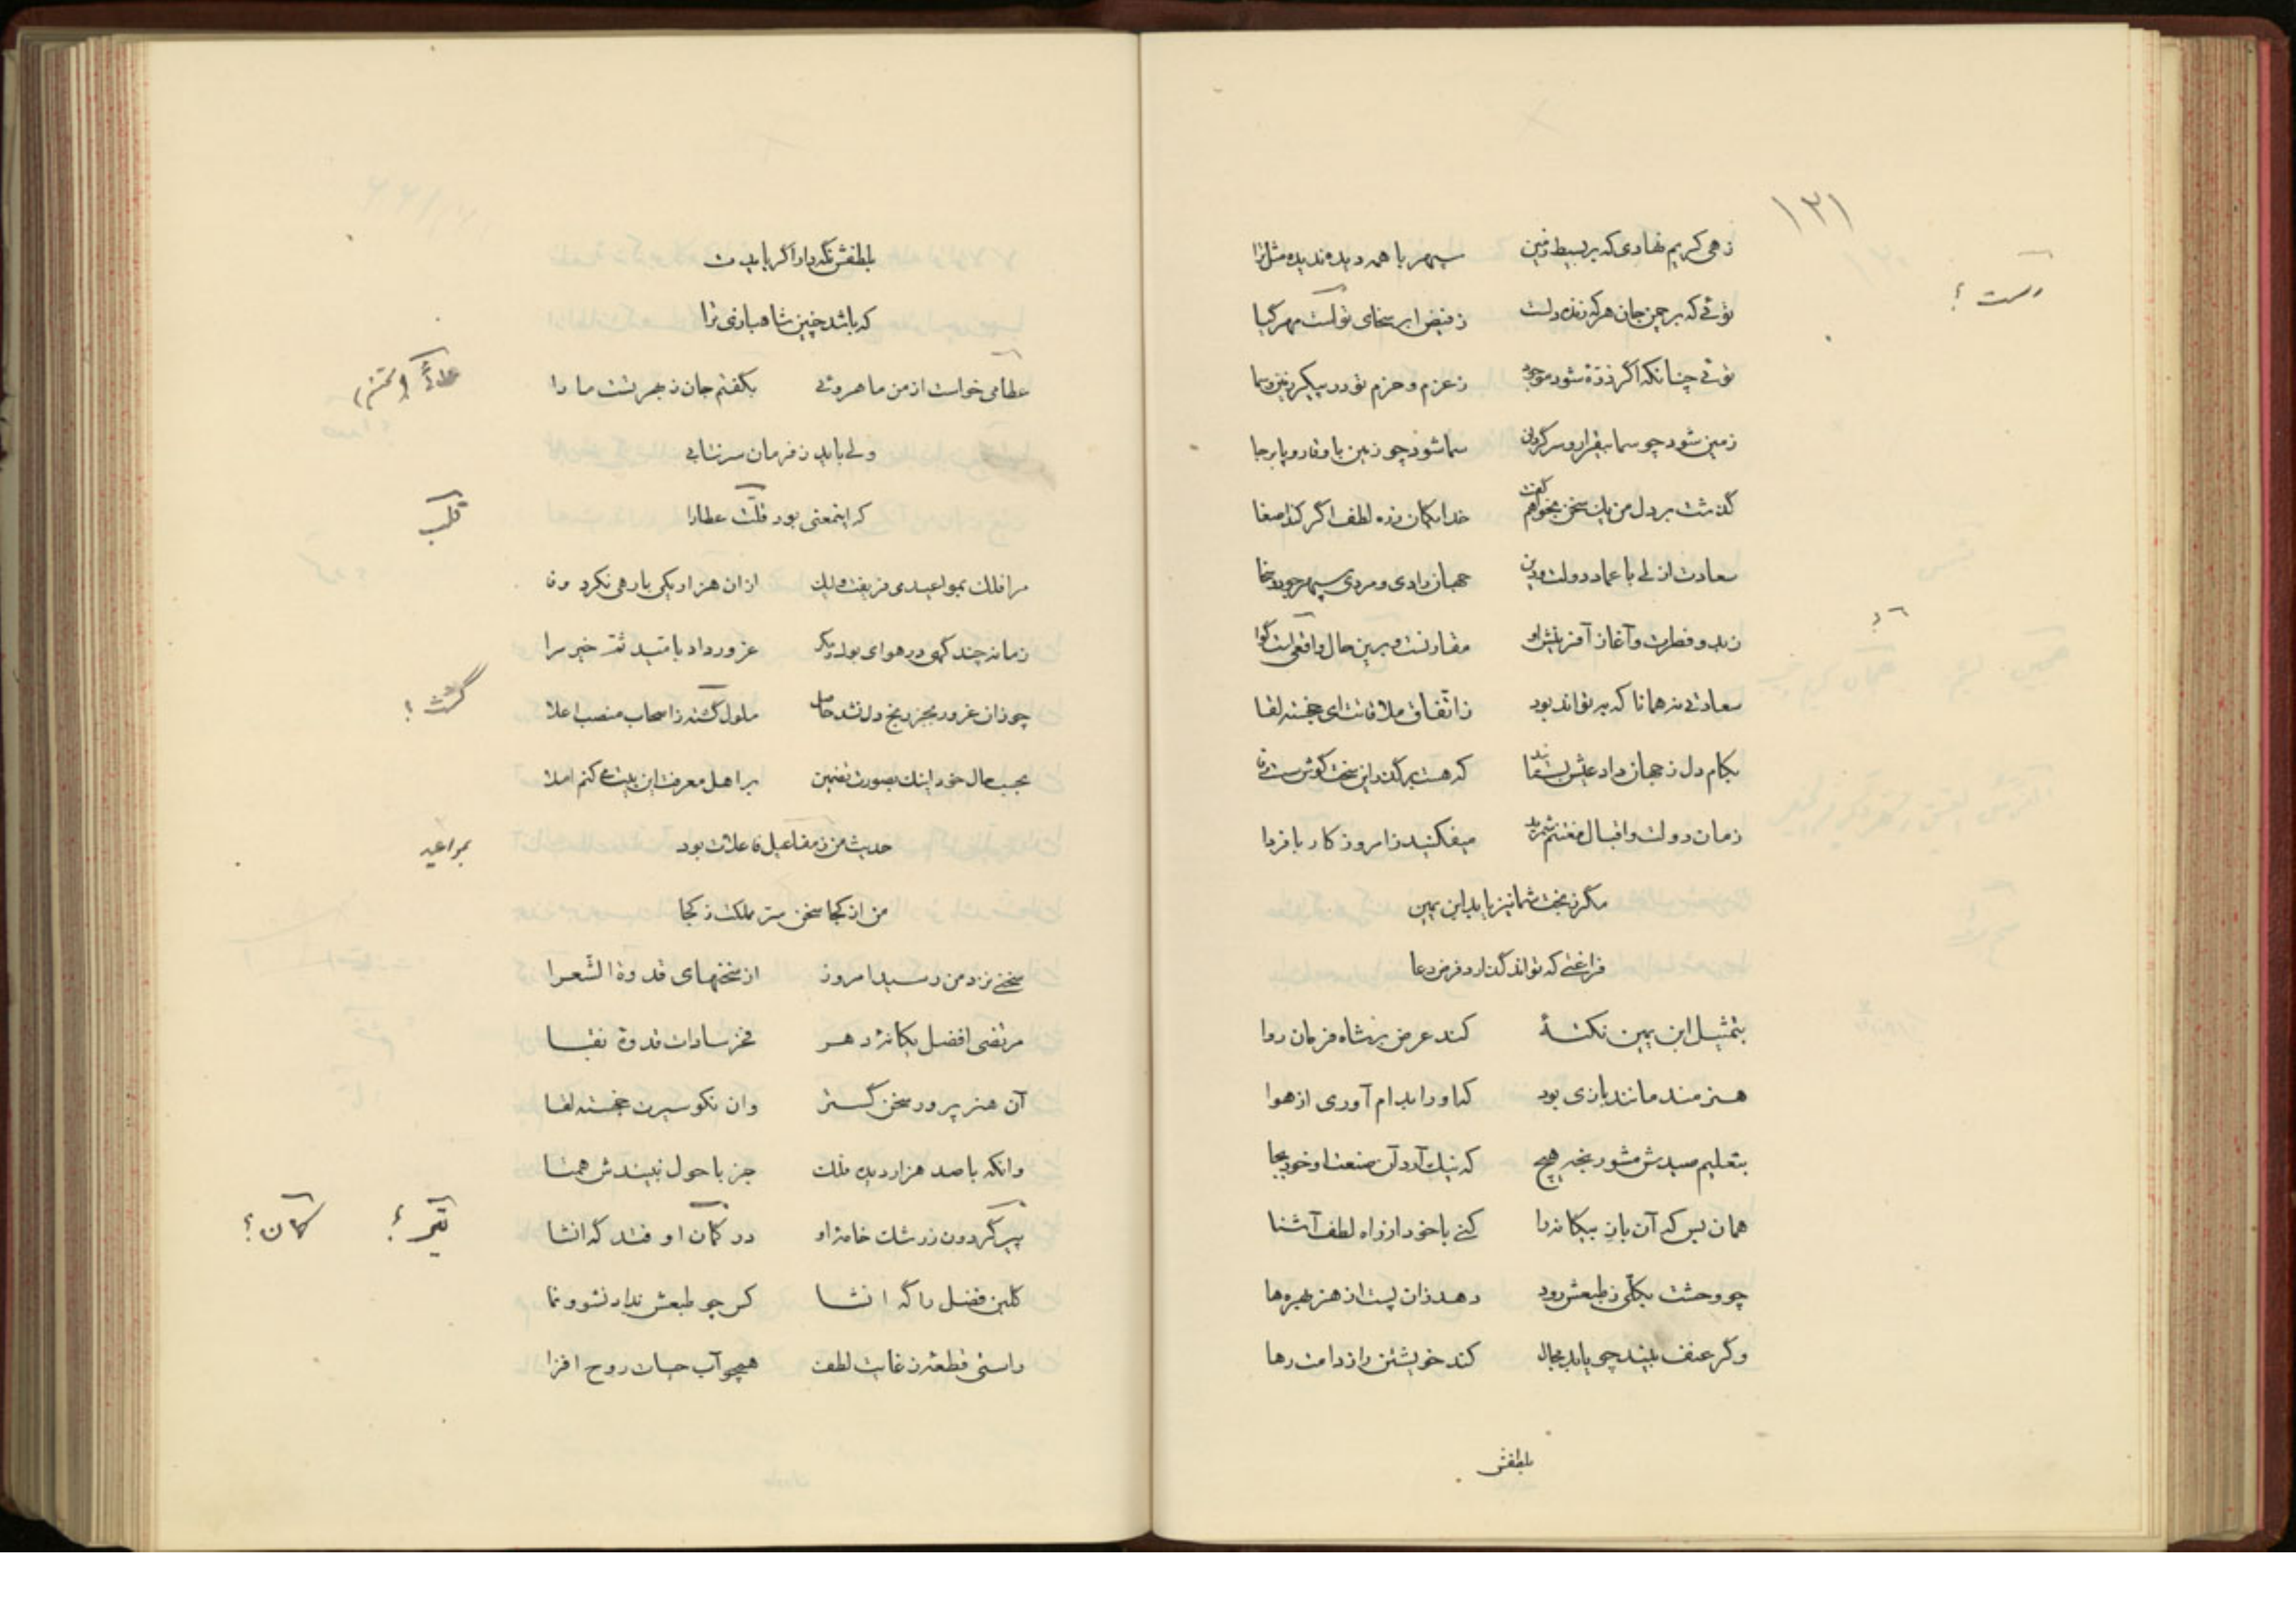 ۱۳۱
زهی کریم نهادی که بر بسیط زمین سپهر با همه دیده ندیده مثل ترا
رست ؟
توئی که بر چمن جان هر که زنده دلست ز فیض ابر سخای تو گشت مهر گیا
توئی چنانکه اگر ذرۀ شود موجود ز عزم و حزم تو در پیکر زمین و سما
زمین شود چو سما بیقرار و سرگردان سما شود چو زمین با وقار و پا برجا
گذشت بر دل من یک سخن بخواهم گفت خدایگان زره لطف اگر کند اصغا
سعادت ازلی با عماد دولت و دین جهان رادی و مردی سپهر جود و سخا
ز بدو فطرت و آغاز آفرینش او مقارنست و برین حال واقعی است گوا
سعادتی نه همانا که به تواند بود ز اتفاق ملاقاتت ای خجسته لقا
بکام دل ز جهان داد عیش بستانید که هست برگذر این سخت کوش سست وفا
زمان دولت و اقبال مغتنم شمرید میفکنید ز امروز کار با فردا
مگر ز بخت شما نیز یابد ابن یمین
فراغتی که تواند گذارد فرض دعا
بتمثیل ابن یمین نکتۀ کند عرض بر شاه فرمان روا
هنرمند مانند بازی بود که او را بدام آوری از هوا
بتعلیم صیدش مشو رنجه هیچ که نیک آرد آن صنعت او خود بجا
همان بس که آن باز بیگانه را کنی با خود از راه لطف آشنا
چو وحشت بکلی ز طبعش رود دهد زان پست از هنر بهره ها
وگر عنف بیند چو یابد مجال کند خویشتن را ز دامت رها
بلطفش
بلطفش نگه دار اگر بایدت
که باشد چنین شاهبازی ترا
عطا می خواست از من ماهروئی بگفتم جان ز بهر تست ما را
ولی باید ز فرمان سرنتابی
که اینمعنی بود قلب عطا را
قلب
مرا فلک بمواعیدی فریفت ولیک از آن هزار یکی بار هی نکرد وفا
زمانه چند گهی در هوای بوک و مگر غرور داد بامید نقد خیر مرا
چو زان غرور بجز رنج دل نشد حاصل ملول گشته ز اصحاب منصب اعلا
گشت ؛
بحسب حال خود اینک بصورت تضمین بر اهل معرفت این بیت می کنم املا
حدیث من ز مفاعیل فاعلات بود
بمواعید
من از کجا سخن سر مملکت ز کجا
سخنی نزد من رسید امروز از سخنهای قدوة الشعرا
مرتضی افضل یگانۀ دهر فخر سادات قدوۀ نقبا
آن هنر پرور سخن گستر وان نکو سیرت خجسته لقا
وانکه با صد هزار دیده فلک جز باحول نبیندش همتا
پیر گردون ز رشک خامۀ او در گمان اوفتد گه انشا
تیر ؟ کمان ؟
گلبن فضل را گه انشا کس چو طبعش نداد نشو و نما
راستی قطعۀ ز غایت لطف همچو آب حیات روح افزا